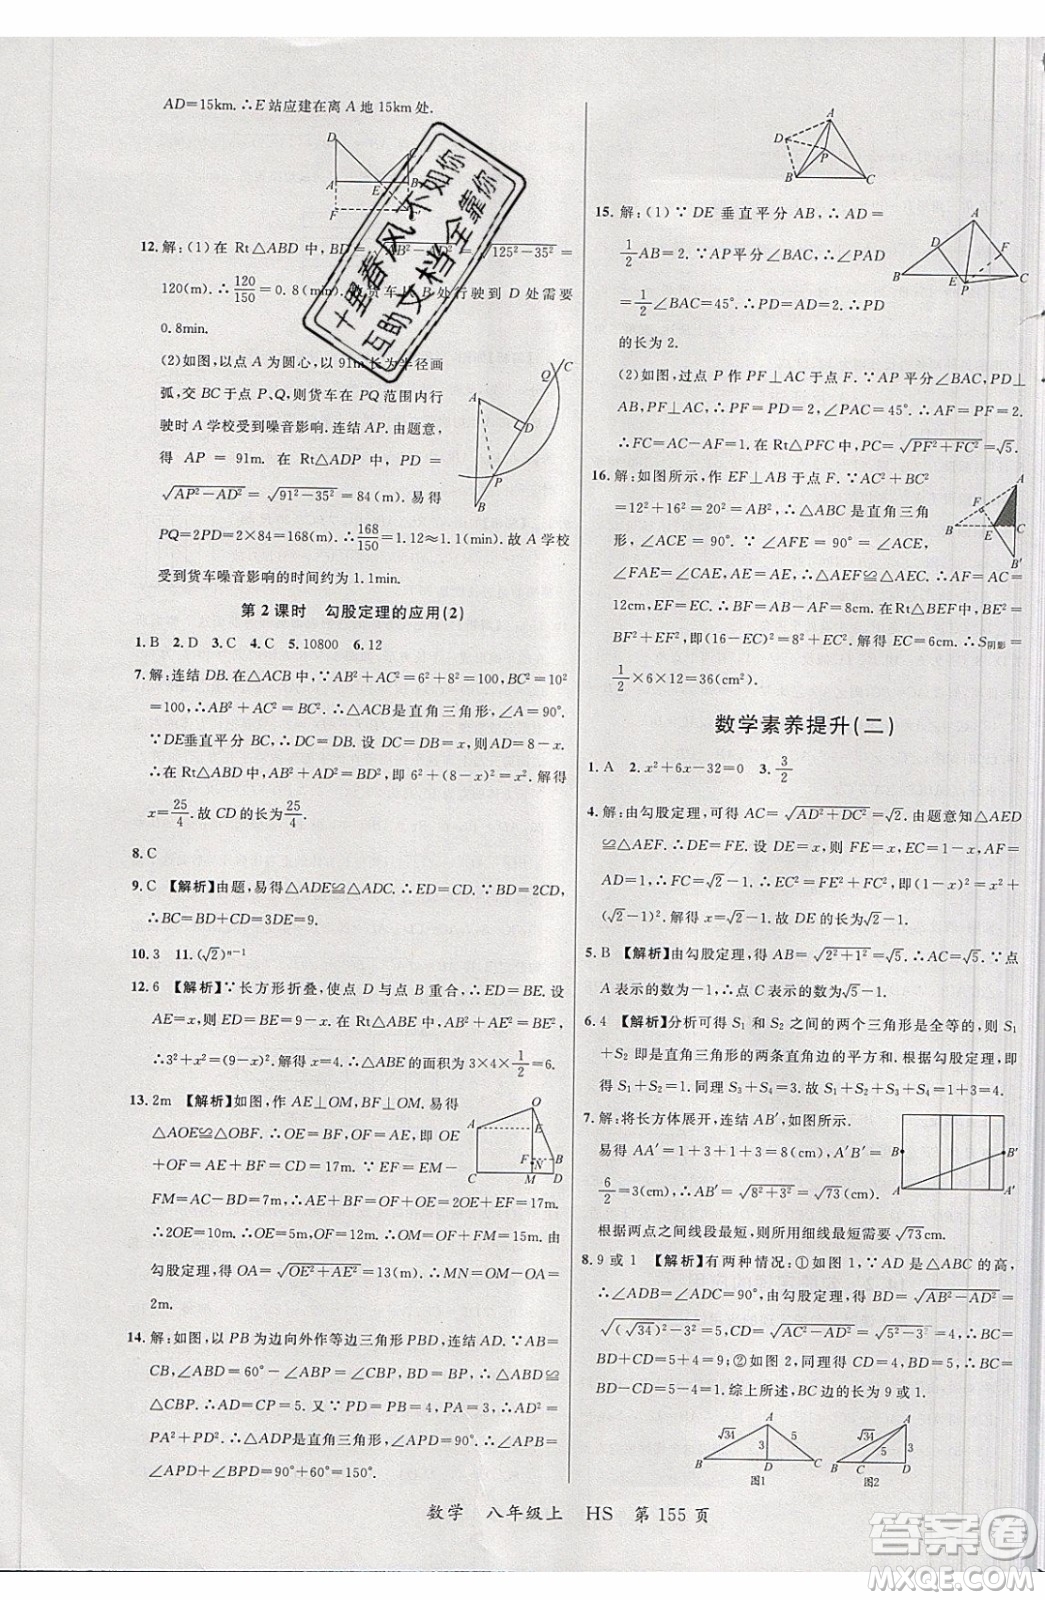 AD=15km.∴E站应建在离A地15km处.
D
C
A
E
B
F
12.解:(1)在Rt△ABD中,
B²−35²=√125²−35²=
120(m).∴120/150=0.8(min).
货车
B处行驶到D处需要
0.8min.
(2)如图,以点A为圆心,以91m长为半径画
弧,交BC于点P、Q,则货车在PQ范围内行
驶时A学校受到噪音影响.连结AP.由题意,
得AP=91m.在Rt△ADP中,PD=
√AP²−AD²=√91²−35²=84(m).易得
PQ=2PD=2×84=168(m).168/150=1.12≈1.1(min).故A学校
受到货车噪音影响的时间约为1.1min.
C
Q
A
D
P
B
第2课时 勾股定理的应用(2)
1.B 2.D 3.C 4.C 5.10800 6.12
7.解:连结DB.在△ACB中,∵AB²+AC²=6²+8²=100,又∵BC²=10²
=100,∴AB²+AC²=BC².∴△ABC是直角三角形,∠A=90°.
∵DE垂直平分BC,∴DC=DB.设DC=DB=x,则AD=8−x.
在Rt△ABD中,∠A=90°,AB²+AD²=BD²,即6²+(8−x)²=x².解得
x=25/4.故CD的长为25/4.
8.C
9.C 【解析】由题,易得△ADE≌△ADC.∴ED=CD.∵BD=2CD,
∴BC=BD+CD=3DE=9.
10.3 11.(√2)ⁿ⁻¹
12.6 【解析】∵长方形折叠,使点D与点B重合,∴ED=BE.设
AE=x,则ED=BE=9−x.在Rt△ABE中,AB²+AE²=BE²,
∴3²+x²=(9−x)².解得x=4.∴△ABE的面积为3×4×1/2=6.
13.2m 【解析】如图,作AE⊥OM,BF⊥OM,易得
△AOE≌△OBF.∴OE=BF,AE=OF,即OE
+OF=AE+BF=CD=17m.∵EF=EM−
FM=AC−BD=7m,∴OE+OF=2OE+EF=17m.
∴2OE=10m.∴OE=5m,OF=12m.∴AE=12m.由
勾股定理,得OA=√OE²+AE²=13(m).∴MN=OM−ON=
2m.
O
A
E
F
B
N
C
M
D
14.解:如图,以PB为边向外作等边三角形PBD,连结AD.∵AB=
CB,∴∠ABD=60°−∠ABP=∠CBP.∵BD=BP,∴△ABD≌
△CBP.∴AD=CP=5.又∵PD=PB=4,AP=3,∴AD²=
PA²+PD².∴△ADP是直角三角形,∠APD=90°.∴∠APB=
∠APD+∠BPD=90°+60°=150°.
A
D
P
B
C
15.解:(1)∵DE垂直平分AP,∴AD=PD=
1/2AB=2.∵AP平分∠BAC,∴∠BAP=
1/2∠BAC=45°.∴PD=AD=2.∴PD
的长为2.
A
D
F
B
E
P
C
(2)如图,过点P作PF⊥AC于点F.∵AP平分∠BAC,PD⊥
AB,∴PF=PD=2.∵∠PAC=45°.∴AF=PF=2.
∴FC=AC−AF=1.在Rt△PFC中,PC=√PF²+FC²=√5.
16.解:如图所示,作EF⊥AB于点F.∵AC²+BC²
=12²+16²=20²=AB²,∴△ABC是直角三角
形,∠ACE=90°.∴∠AFE=∠ACE=90°.又
∵∠FAE=∠CAE,AE=AE,∴△AFE≌△ACE.∴AF=AC=
12cm,EF=EC.∴BF=8cm.在Rt△BEF中,由勾股定理,得
BF²+EF²=BE²,即(16−EC)²=8²+EC².解得EC=6cm.∴S阴影=
1/2×6×12=36(cm²).
A
F
B
E
C
B′
数学素养提升(二)
1.A 2.x²+6x−32=0 3.3/2
4.解:由勾股定理,可得AC=√AD²+DC²=√2.由题意知△AED
≌△AEF.∴DE=FE.设DE=FE=x,则EC=1−x,AF=
AD=1.∴CF=√2−1.在Rt△EFC中,EC²=EF²+FC²,即(1−x)²=x²+
(√2−1)².解得x=√2−1.故DE的长为√2−1.
5.B 【解析】由勾股定理,得AB=√2²+1²=√5.∴AC=√5.∵点
A表示的数为−1,∴点C表示的数为√5−1.
6.4 【解析】分析可得S₁和S₂之间的两个三角形是全等的,则S₁
+S₂即是直角三角形的两条直角边的平方和.根据勾股定理,即
得S₁+S₂=1.同理S₃+S₄=3.故S₁+S₂+S₃+S₄=1+3=4.
7.解:将长方体展开,连结AB′,如图所示.
易得AA′=1+3+1+3=8(cm),A′B′=
6/2=3(cm),∴AB′=√8²+3²=√73(cm).
根据两点之间线段最短,则所用细线最短需要√73cm.
B
B′
A
A′
8.9或1 【解析】有两种情况:①如图1.∵AD是△ABC的高,
∴∠ADB=∠ADC=90°.由勾股定理,得BD=√AB²−AD²=
√(√34)²−3²=5,CD=√AC²−AD²=√5²−3²=4.∴BC=
BD+CD=5+4=9;②如图2,同理得CD=4,BD=5.∴BC=
BD−CD=5−4=1.综上所述,BC的长为9或1.
A
√34
5
3
B
D
C
图1
A
√34
5
3
B
C
D
图2
数学 八年级上 HS 第155页
十里春风 不如你
互助文档 全靠你
答案圈
MXQE.COM